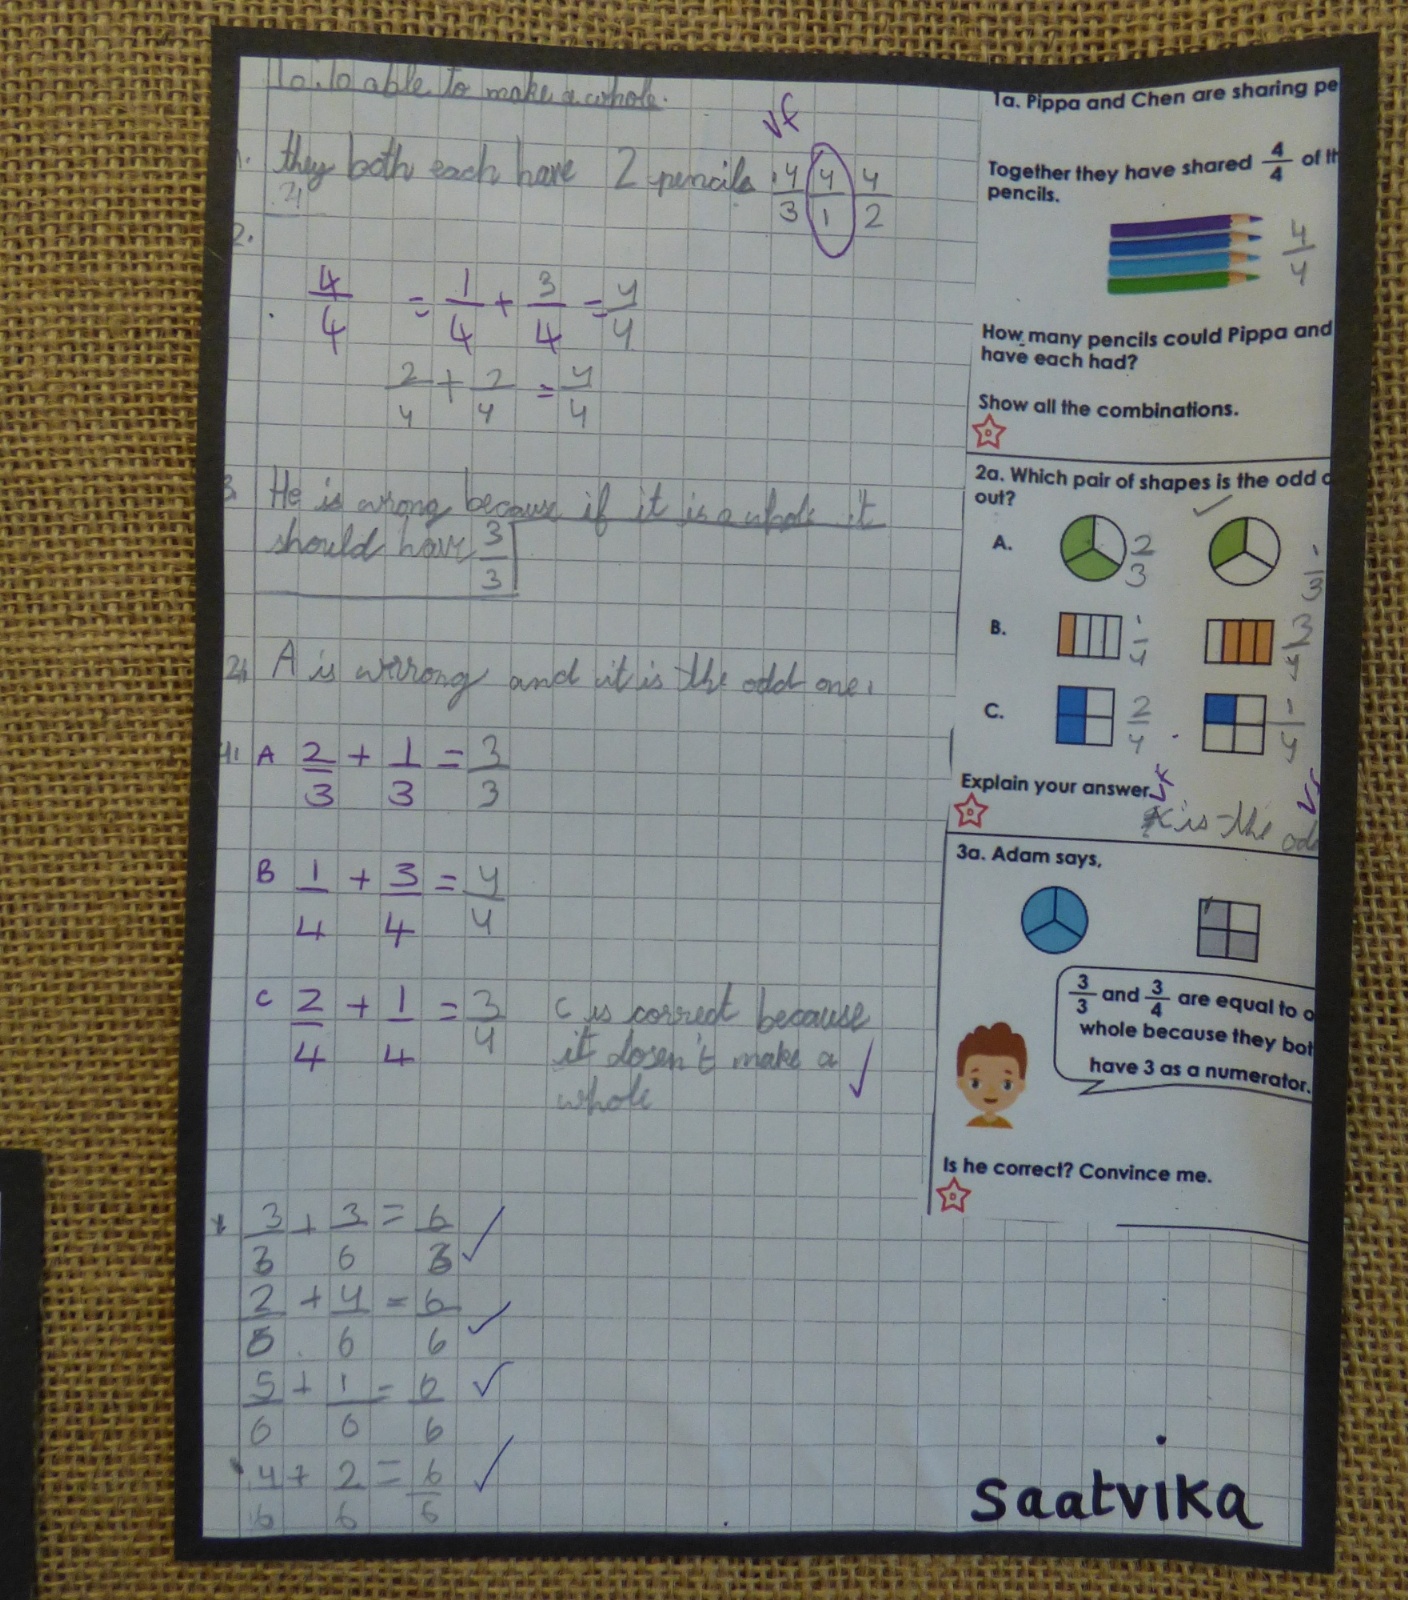 to able to make a whole.
1. they both each have 2 pencils 4/3 4/1 4/2
vf
2.
4/4 = 1/4 + 3/4 = 4/4
2/4 + 2/4 = 4/4
3. He is wrong because if it is a whole it
should have 3/3
A is wrrong and it is the odd one.
A 2/3 + 1/3 = 3/3
B 1/4 + 3/4 = 4/4
C 2/4 + 1/4 = 3/4
C is correct because
it dosen't make a
whole
3/3 + 3/6 = 6/3
2/6 + 4/6 = 6/6
5/6 + 1/6 = 6/6
4/6 + 2/6 = 6/6
1a. Pippa and Chen are sharing pe
Together they have shared 4/4 of th
pencils.
4/4
How many pencils could Pippa and
have each had?
Show all the combinations.
2a. Which pair of shapes is the odd o
out?
A. 2/3 1/3
B. 1/4 3/4
C. 2/4 1/4
Explain your answer.
is the od
3a. Adam says,
3/3 and 3/4 are equal to o
whole because they bot
have 3 as a numerator.
Is he correct? Convince me.
Saatvika